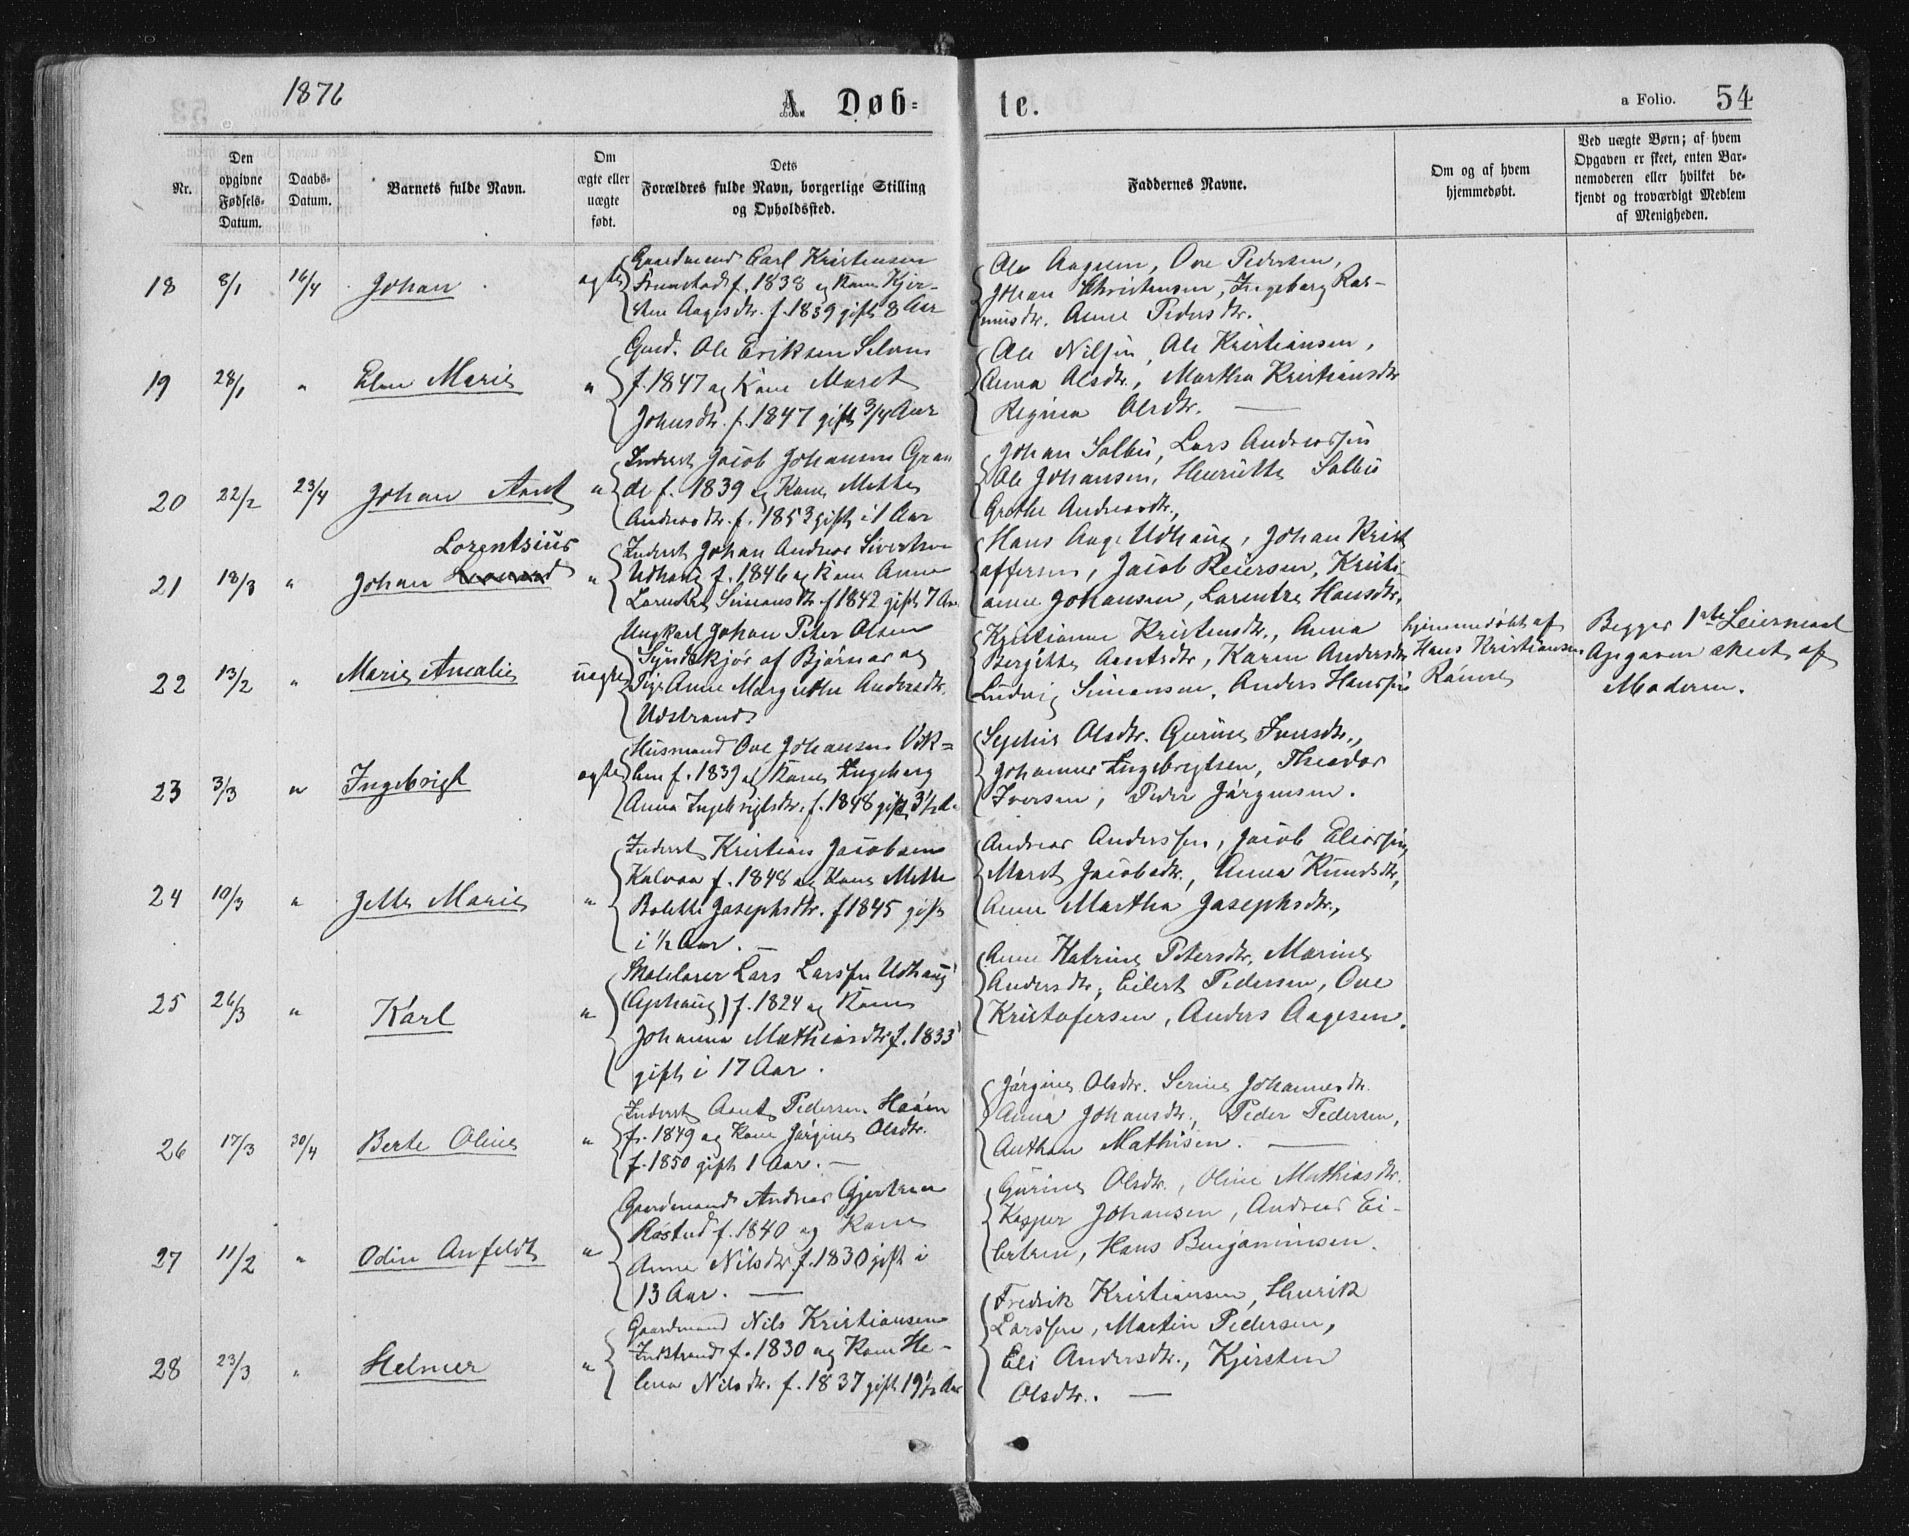 1876
A. Døb=
te.
a Folio. 54
Nr.
Den opgivne Fødsels-Datum.
Daabs-Datum.
Barnets fulde Navn.
Om ægte eller uægte født.
Dets Forældres fulde Navn, borgerlige Stilling og Opholdssted.
Faddernes Navne.
Om og af hvem hjemmedøbt.
Ved uægte Børn; af hvem Opgaven er skeet, enten Barnemoderen eller hvilket bekjendt og troværdigt Medlem af Menigheden.
18 8/1 16/4 Johan ægte
Gaardmand Carl Kristensen
f. 1838 og Kone Kjer-
sten Aagesdtr. f. 1839 gift 8 Aar
Ole Aagesen, Ove Pedersen,
Johan Christensen, Ingeborg Ras-
musdtr. Anne Pedersdtr.
19 28/1 " Elen Marie "
Gmd. Ole Eriksen Selvnes
f. 1847 og Kone Maret
Johnsdtr. f. 1847 gift 3/4 Aar
Ole Nilsen, Ole Kristiansen,
Anna Olsdtr., Martha Kristiansdtr
Regina Olsdtr. —
20 22/2 23/4 Johan Arnt "
Inderst Jacob Johansen Gran
de f. 1839 og Kone Mette
Andreasdtr. f. 1853 gift i 1 Aar
Johan Solbu, Lars Andreassen
Ole Johansen, Henriette Solbu
Grethe Andreasdtr.,
21 18/3 " Johan Lorentsius "
Inderst Johan Andreas Sivertsen
Udhaug f. 1846 og Kone Anne
Lorentze Simonsdtr f 1842 gift 7 Aar
Hans Aage Udhaug, Johan Krist
offersen, Jacob Reiersen, Kristi-
anne Johansen, Lorentze Hansdtr.
22 13/2 " Marie Amalie uægte
Ungkarl Johan Peter Olsen
af Bjørnør og
Pige Anne Margrethe Andersdtr.
Udstrand
Kristianne Kristensdtr., Anna
Bergitte Arntsdtr, Karen Andersdtr
Ludvig Simonsen, Anders Hanssen
hjemmedøbt af
Hans Kristiansen
Begges 1ste Leiermaal
Opgaven skeet af
Moderen.
23 3/3 " Ingebrigt ægte
Husmand Ove Johansen Vik-
len f. 1839 og Kone Ingeborg
Anna Ingebrigtsdtr. f. 1848 gift 3 1/2 A.
Sophie Olsdtr. Gurine Iversdtr.,
Johannes Ingebrigtsen, Theodor
Iversen, Peder Jørgensen.
24 10/3 " Jette Marie "
Inderst Kristian Jacobsen
Kalvaa f. 1848 og Kone Mette
Bolette Josephsdtr. f 1845 gift
i 1/2 Aar. —
Andreas Anderssen, Jacob Eliassen,
Maret Jacobsdtr., Anna Knudsdtr,
Anne Martha Josephsdtr.,
25 26/3 " Karl "
Skolelærer Lars Larssen Udhaug
(Ophaug) f. 1824 og Kone
Johanna Mathiasdtr f. 1833
gift i 17 Aar.
Anne Katrine Petersdtr, Marine
Andersdtr, Eilert Pedersen, Ove
Kristofersen, Anders Aagesen.
26 17/3 30/4 Berte Oline "
Inderst Arnt Pedersen
f. 1849 og Kone Jørgine Olsdtr.
f. 1850 gift 1 Aar. —
Jørgine Olsdtr. Serine Johannesdtr.
Anna Johansdtr., Peder Pedersen,
Anthon Mathisen. —
27 11/2 " Odin Anfeldt "
Gaardmand Andreas Gjertsen
Røstad f. 1840 og Kone
Anne Nilsdtr. f. 1830 gift i
13 Aar. —
Gurine Olsdtr., Oline Mathiasdtr.
Kasper Johansen, Andreas Ei-
lertsen, Hans Benjaminsen.
28 23/3 " Helmer "
Gaardmand Nils Kristiansen
Indstrand f. 1830 og Kone He-
lena Nilsdtr. f. 1837 gift 19 1/2 Aar
Fredrik Kristiansen, Henrik
Larssen, Martin Pedersen,
Eli Andersdtr., Kjersten
Olsdtr. —